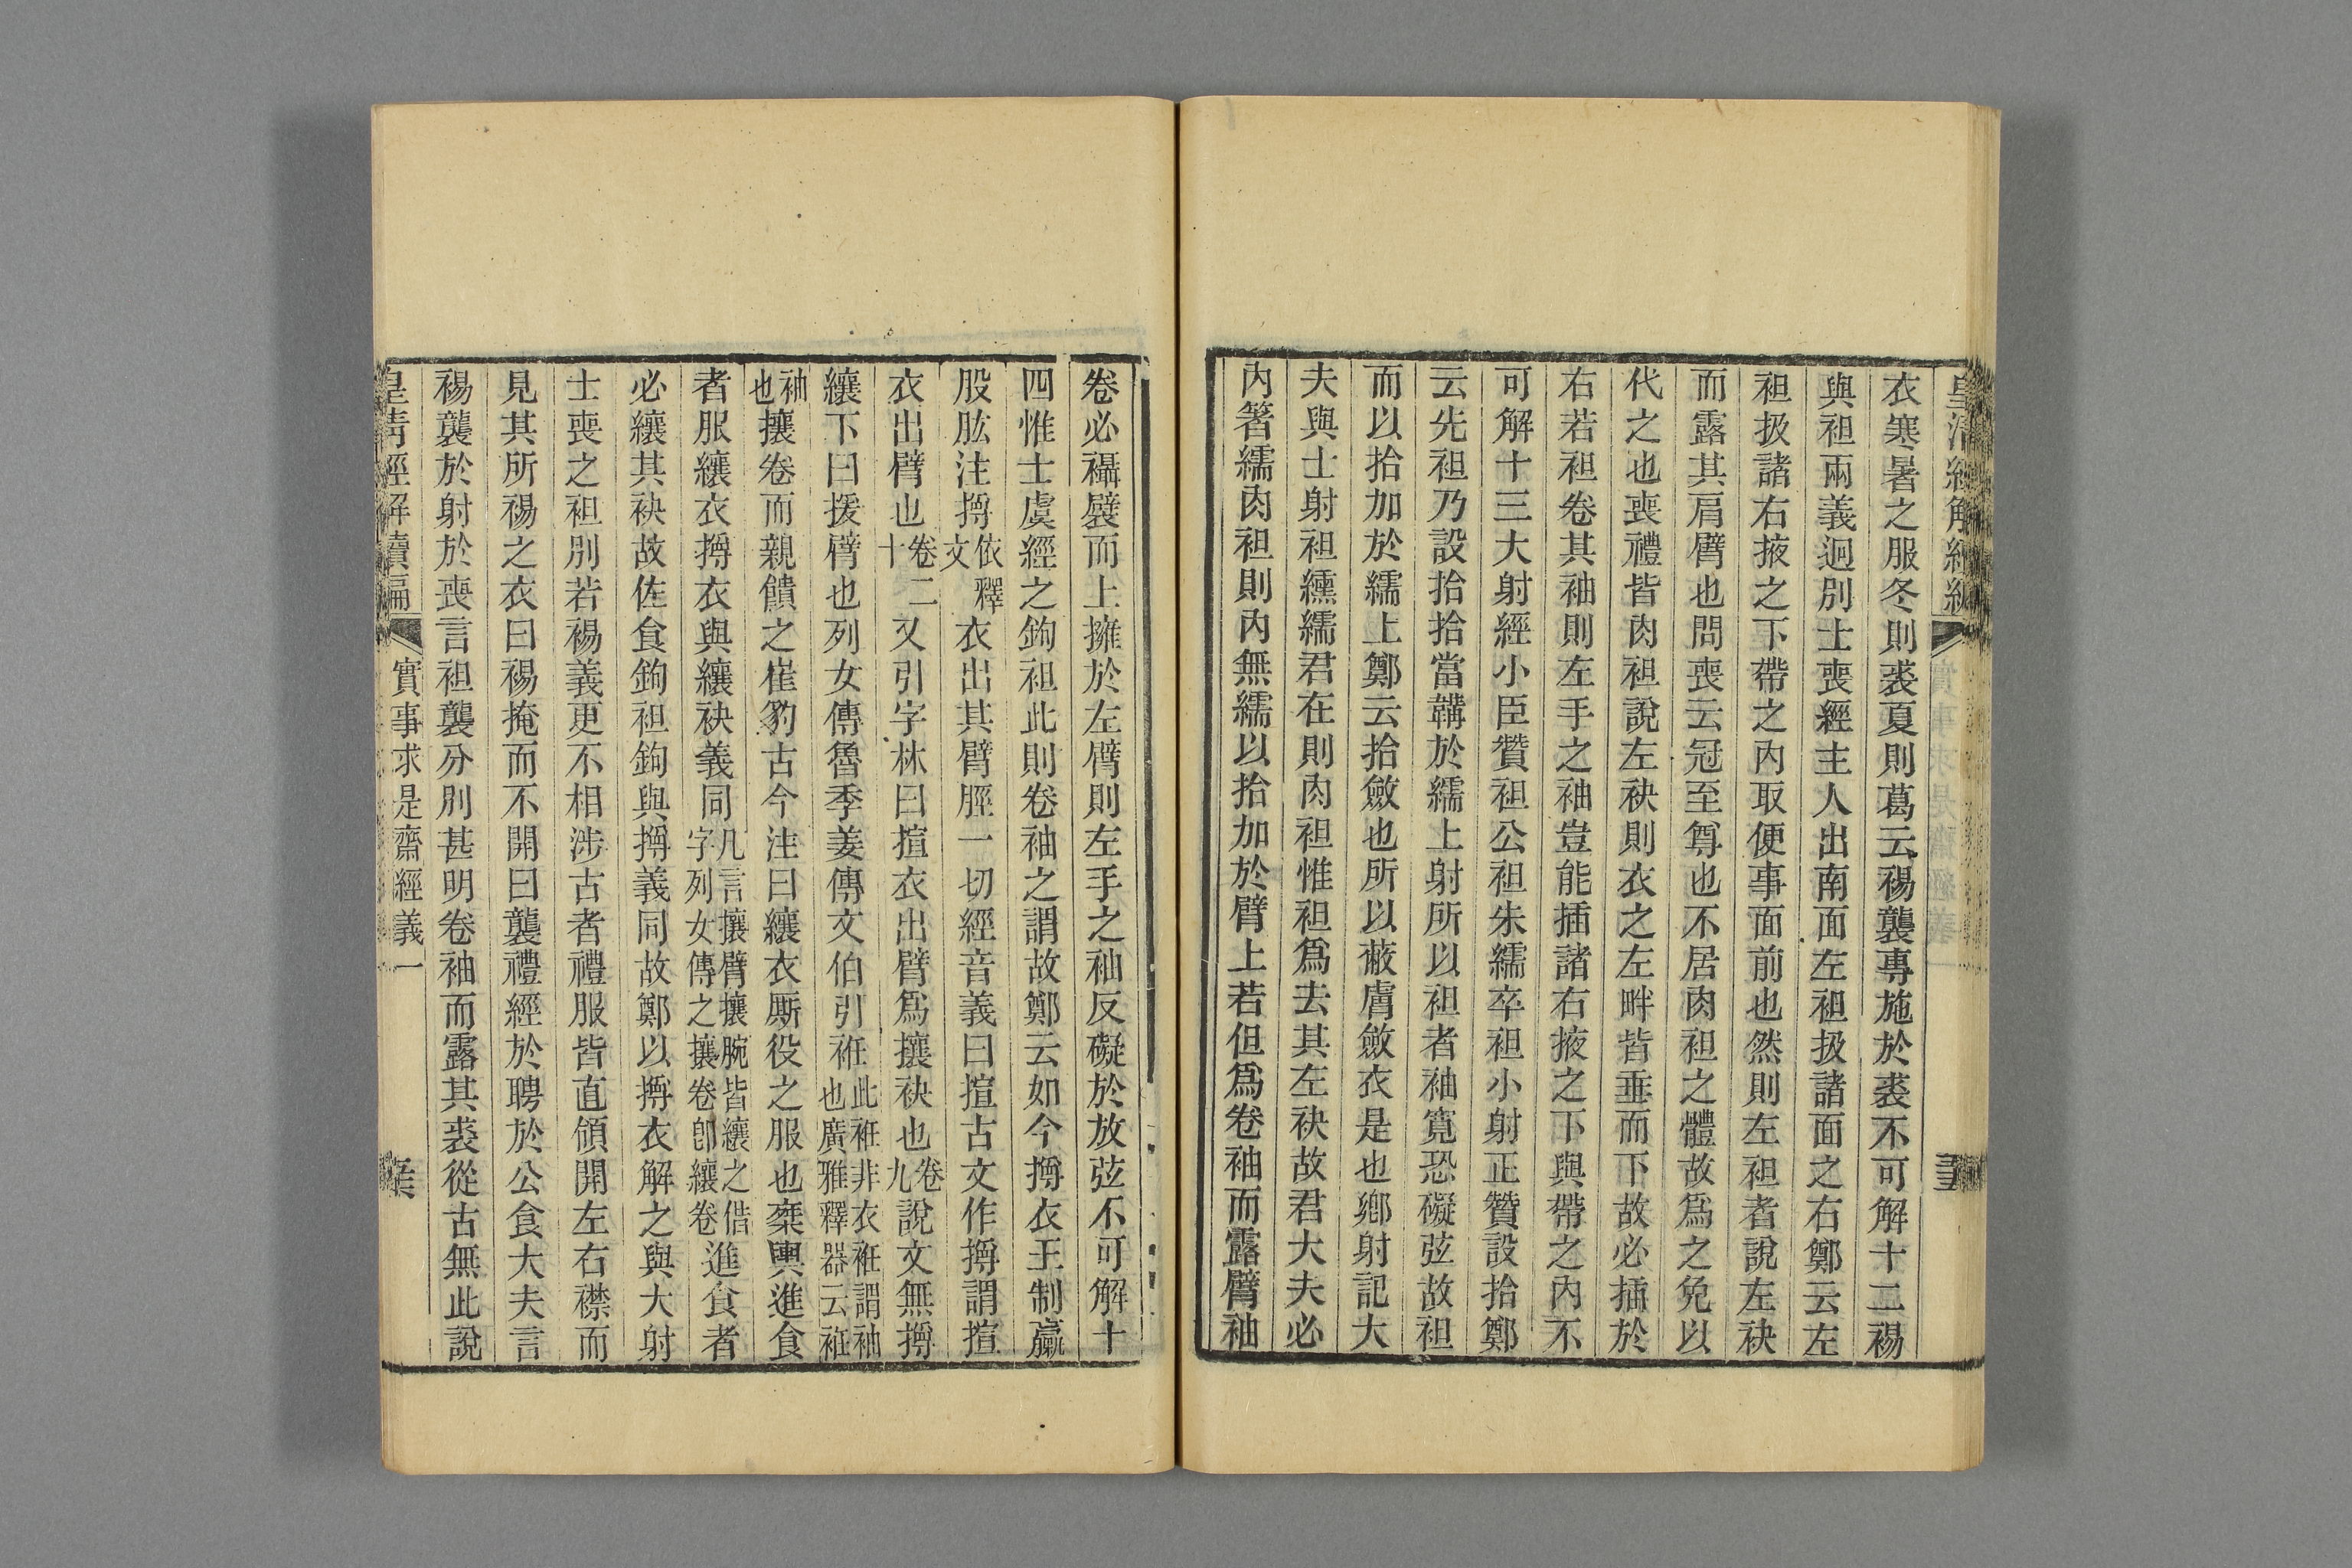 衣寒暑之服冬則裘夏則葛云裼襲專施於裘不可解十二裼
與袒兩義迥別士喪經主人出南面左袒扱諸面之右鄭云左
袒扱諸右掖之下帶之內取便事面前也然則左袒者說左袂
而露其肩臂也問喪云冠至尊也不居肉袒之體故爲之免以
代之也喪禮皆肉袒說左袂則衣之左畔皆垂而下故必插於
右若袒卷其袖則左手之袖豈能插諸右掖之下與帶之內不
可解十三大射經小臣贊袒公袒朱繻卒袒小射正贊設拾鄭
云先袒乃設拾拾當韝於繻上射所以袒者袖寬恐礙弦故袒
而以拾加於繻上鄭云拾斂也所以蔽膚斂衣是也鄉射記大
夫與士射袒纁繻君在則肉袒惟袒爲去其左袂故君大夫必
內箸繻肉袒則內無繻以拾加於臂上若但爲卷袖而露臂袖
卷必襵襞而上擁於左臂則左手之袖反礙於放弦不可解十
四惟士虞經之鉤袒此則卷袖之謂故鄭云如今撏衣王制臝
股肱注撏依釋文衣出其臂脛一切經音義曰揎古文作撏謂揎
衣出臂也卷二十又引字林曰揎衣出臂爲攘袂也卷九說文無撏
纕下曰援臂也列女傳魯季姜傳文伯引袵此袵非衣袵謂袖也廣雅釋器云袵
袖也攘卷而親饋之崔豹古今注曰纕衣厮役之服也槩輿進食
者服纕衣撏衣與纕袂義同凡言攘臂攘腕皆纕之借字列女傳之攘卷卽纕卷進食者
必纕其袂故佐食鉤袒鉤與撏義同故鄭以撏衣解之與大射
士喪之袒別若裼義更不相涉古者禮服皆直領開左右襟而
見其所裼之衣曰裼掩而不開曰襲禮經於聘於公食大夫言
裼襲於射於喪言袒襲分別甚明卷袖而露其裘從古無此說
皇清經解續編
實事求是齋經義一